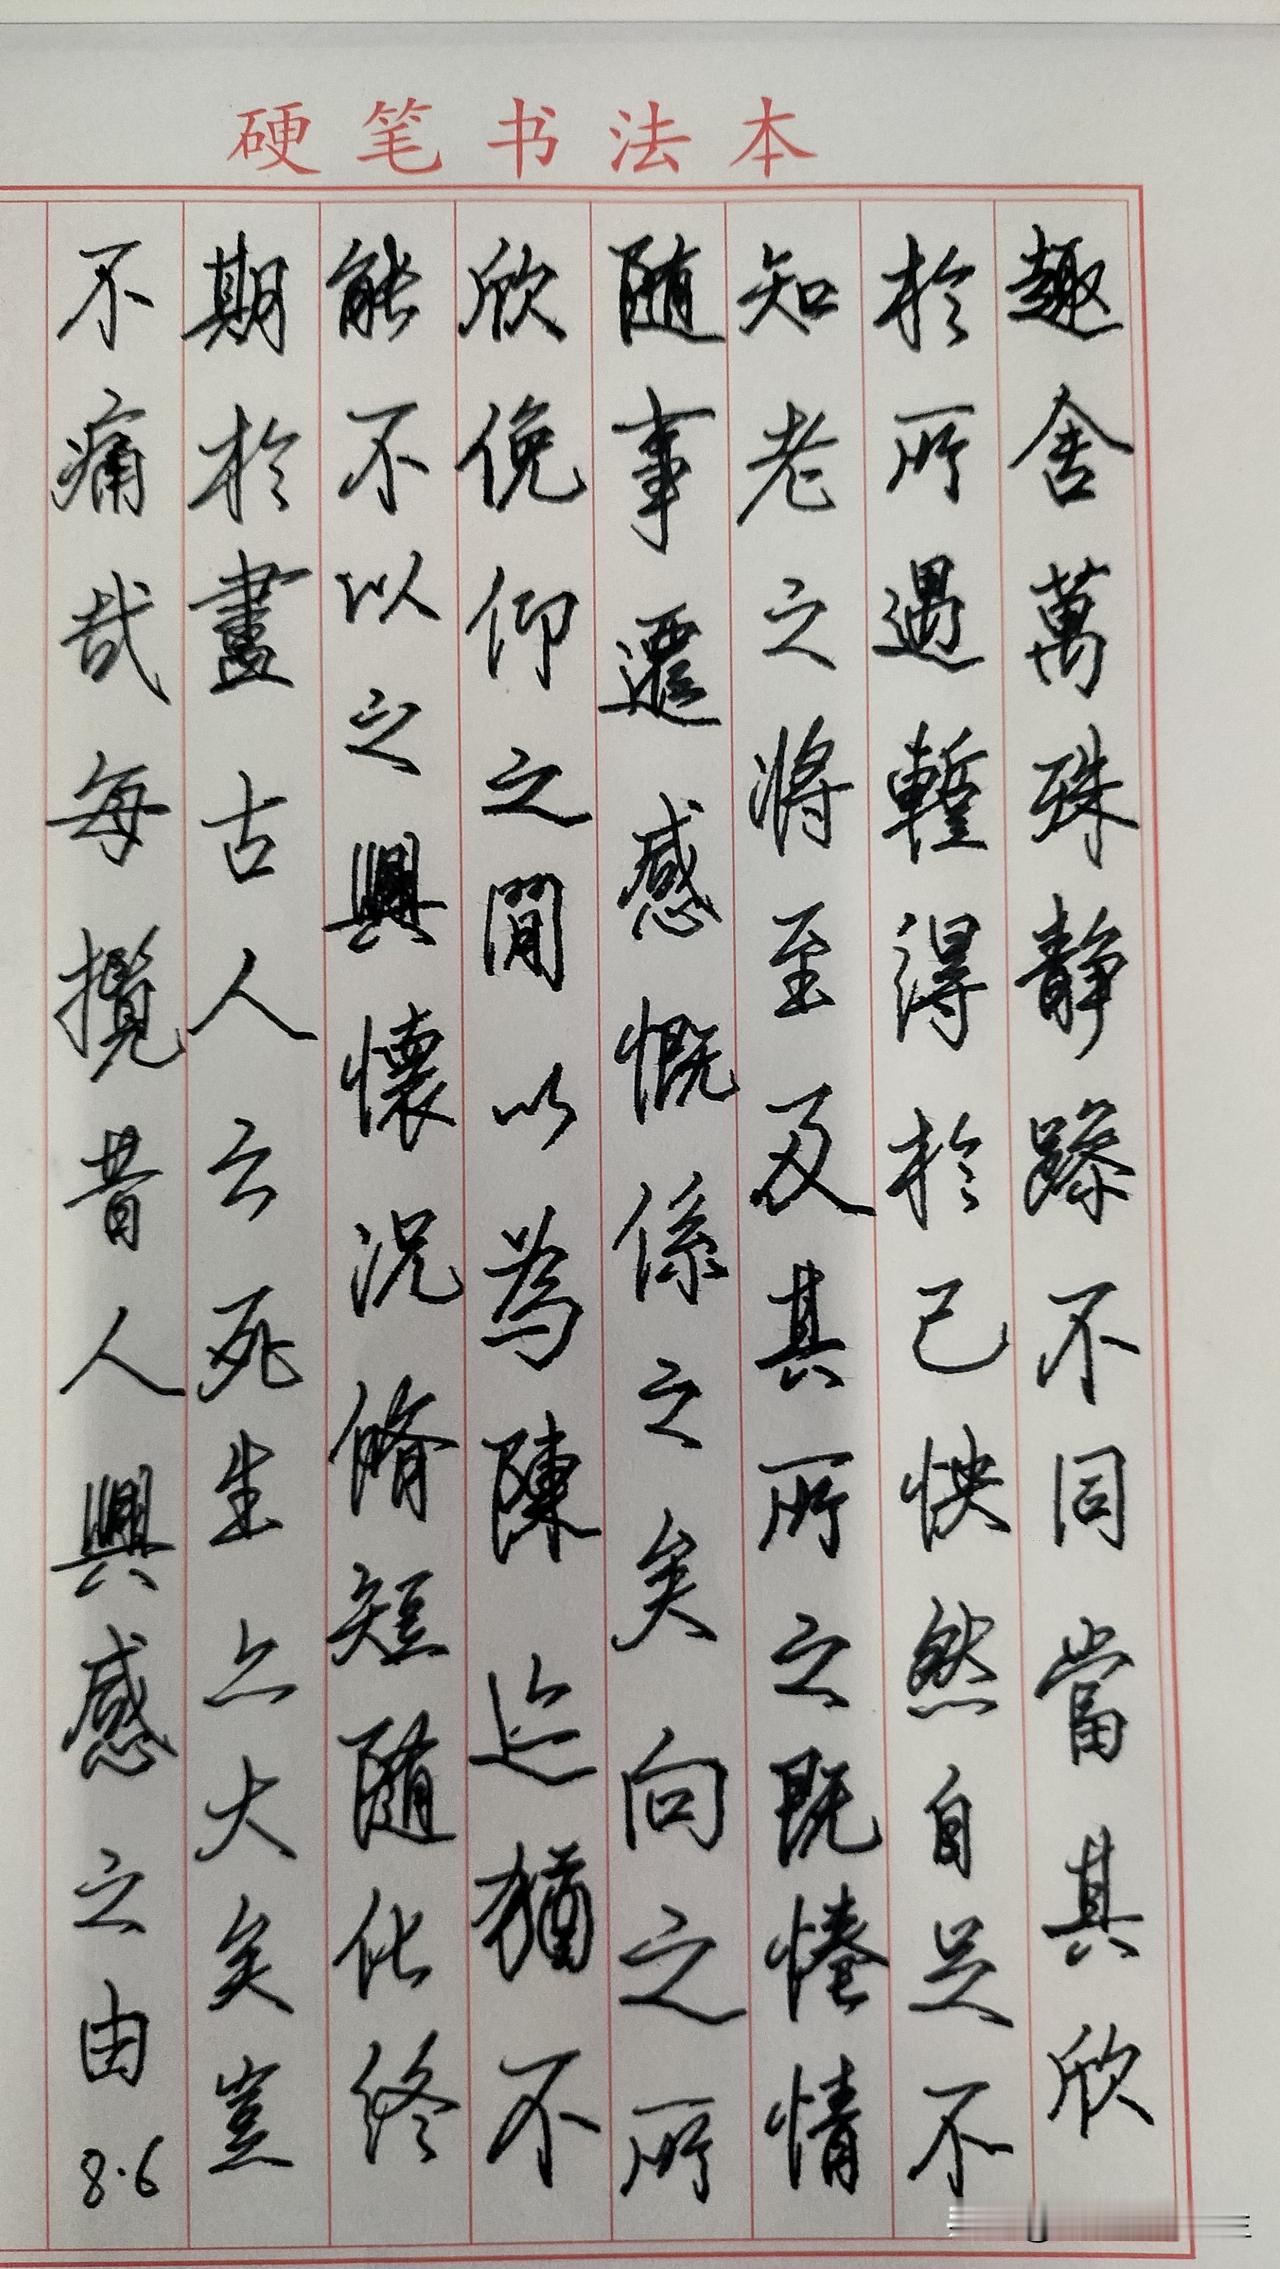 硬笔书法本
趣舍萬殊静躁不同當其欣
於所遇蹔得於己怏然自足不
知老之将至及其所之既惓情
随事遷感慨係之矣向之所
欣俛仰之間以為陳迹猶不
能不以之興懷况脩短隨化終
期於盡古人云死生亦大矣豈
不痛哉每攬昔人興感之由8.6